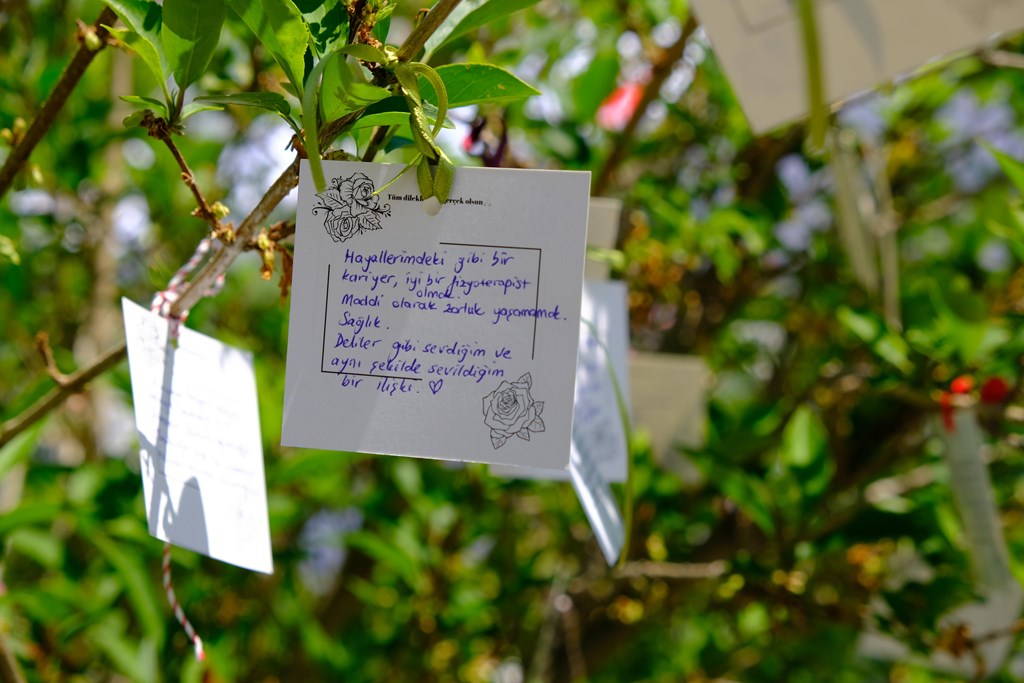 Tüm olsun..
Hayallerimdeki gibi bir
kariyer, iyi bir fizyoterapist
olmak.
Maddi olarak zorluk yaşamamak.
Sağlık.
Deliler gibi sevdiğim ve
aynı şekilde sevildiğim
bir ilişki. ♡